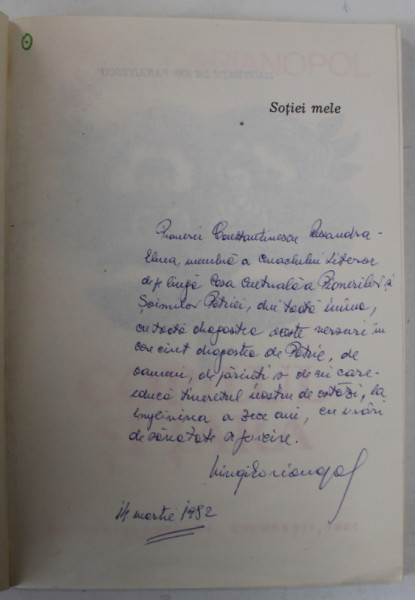 ARIANOPOL
ILUSTRAȚII DE ION PANAITESCU
Soției mele
Pionerei Constantinescu Casandra-
Elena, membră a Cenaclului Literar
de pe lîngă Casa Centrală a Pionerilor și
Șoimilor Patriei, din toată inima,
cu toată dragostea aceste versuri în
care cînt dragostea de Patrie, de
oameni, de părinți și de cei care
educă tineretul nostru de astăzi, la
împlinirea a zece ani, cu urări
de sănătate și fericire.
Virgil Carianopol
14 martie 1982